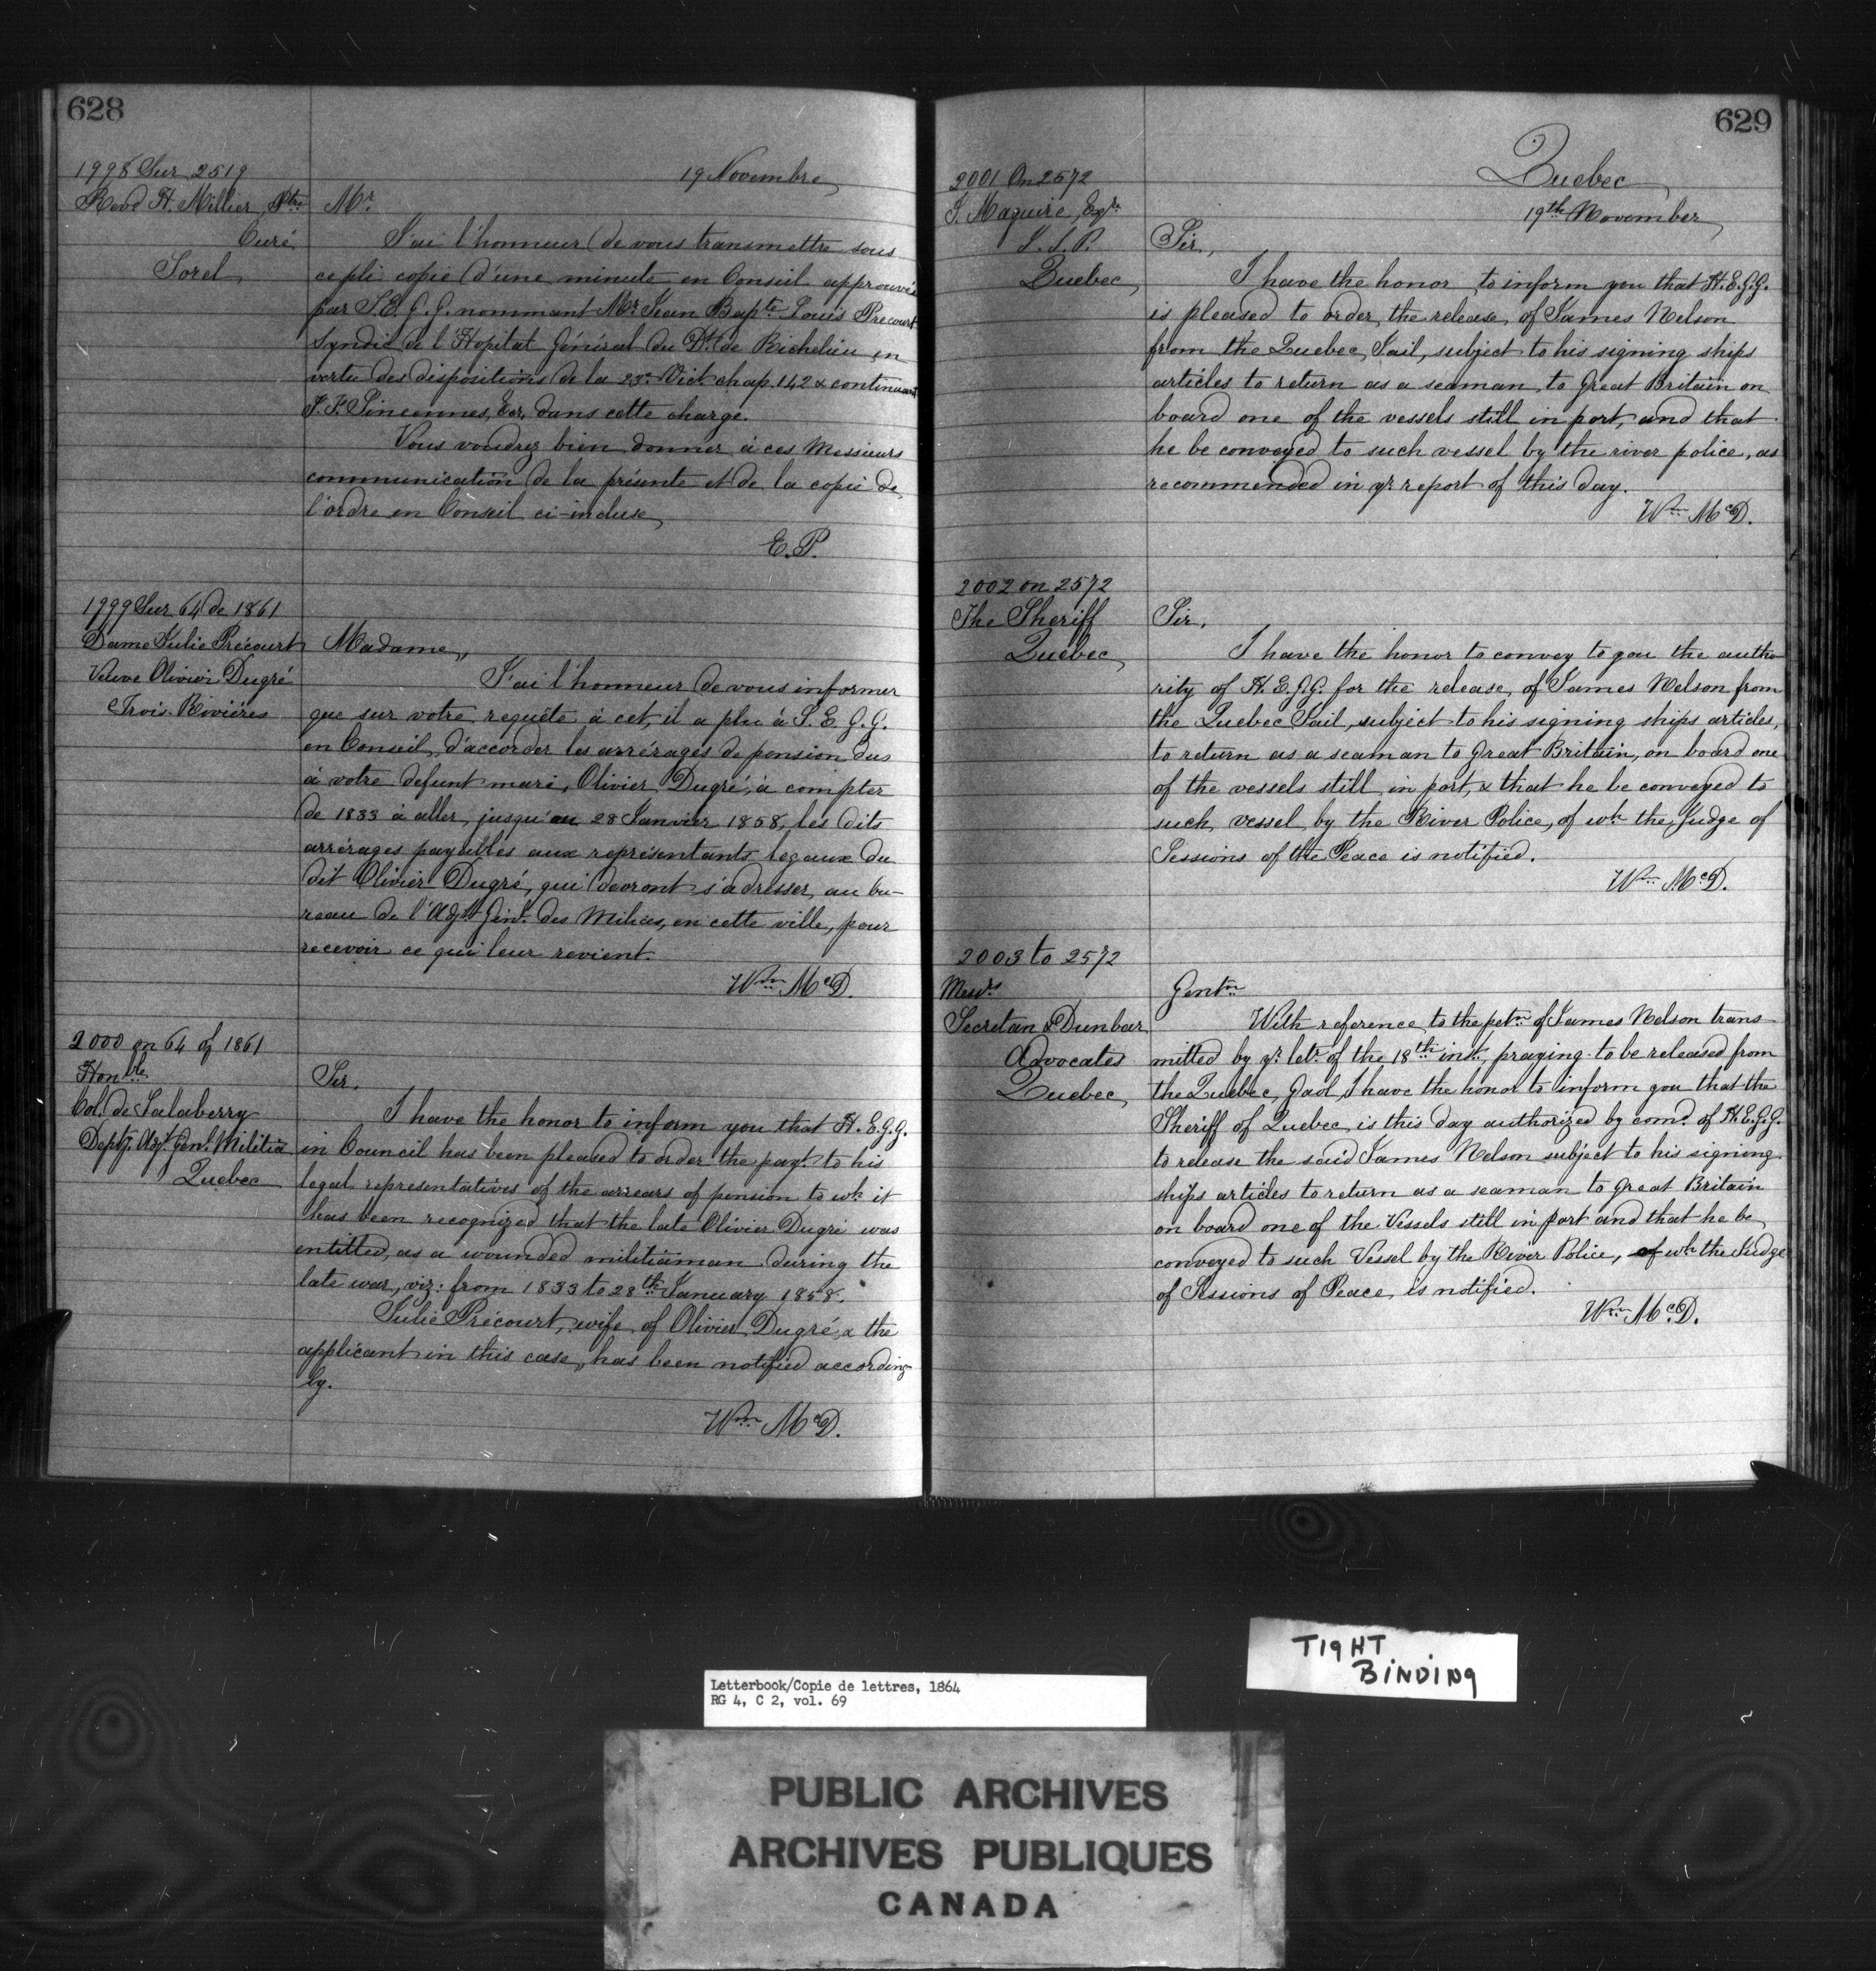 628
19 Novembre
1998 Sur 2519
Revd H. Millier, Ptre
Curé
Sorel
Mr
J'ai l'honneur de vous transmettre sous
ce pli copie d'une minute en Conseil approuvée
par S.E.G.G. nommant Mr Jean Bapte Louis Precourt
Syndic de l'Hopital Général du Dt de Richelieu en
vertu des dispositions de la 23e Vict chap. 142 & continuant
J. F. Sincennes, Ecr, dans cette charge.
Vous voudrez bien donner à ces Messieurs
communication de la présente et de la copie de
l'ordre en Conseil ci-incluse,
E.P.
1999 Sur 64 de 1861
Dame Julie Précourt
Veuve Olivier Dugré
Trois-Rivières
Madame,
J'ai l'honneur de vous informer
que sur votre requête à cet, il a plu à S.E.G.G.
en Conseil, d'accorder les arrérages de pension dus
à votre defunt mari, Olivier Dugré, à compter
de 1833 à aller, jusqu'au 28 Janvier 1858, les dits
arrérages payables aux représentants legaux du
dit Olivier Dugré, qui devront s'adresser, au bu-
reau de l'Adjt Génl. des Milices, en cette ville, pour
recevoir ce qui leur revient.
Wm McD.
2000 on 64 of 1861
Honble
Col. de Salaberry
Depty. Adjt. Genl. Militia
Quebec
Sir,
I have the honor to inform you that H.E.G.G.
in Council has been pleased to order the payt. to his
legal representatives of the arrears of pension to wh. it
has been recognized that the late Olivier Dugré was
intitled, as a wounded militiaman during the
late war, viz: from 1833 to 28th January 1858.
Julie Précourt, wife of Olivier Dugré, & the
applicant in this case, has been notified according-
ly.
Wm McD.
629
Quebec
19th November
2001 On 2572
J. Maguire, Eqre
J.S.P.
Quebec,
Sir,
I have the honor to inform you that H.E.G.G.
is pleased to order, the release, of James Nelson
from the Quebec Jail, subject to his signing ships
articles to return as a seaman, to Great Britain on
board one of the vessels still in port, and that
he be conveyed to such vessel by the river police, as
recommended in yr. report of this day.
Wm McD.
2002 on 2572
The Sheriff
Quebec,
Sir,
I have the honor to convey to you the autho
rity of H.E.G.G. for the release, of James Nelson from
the Quebec Jail, subject to his signing ships articles,
to return as a seaman to Great Britain, on board one
of the vessels still in port, & that he be conveyed to
such vessel by the River Police, of wh the Judge of
Sessions of the Peace is notified.
Wm McD.
2003 to 2572
Messrs
Secretan & Dunbar
Advocates
Quebec,
Gentn
With reference to the petn. of James Nelson trans
mitted by yr. letr. of the 18th inst., praying to be released from
the Quebec, Gaol, I have the honor to inform you that the
Sheriff of Quebec, is this day authorized by comd. of H.E.G.G.
to release the said James Nelson subject to his signing
ships articles to return as a seaman to Great Britain
on board one of the Vessels still in port and that he be
conveyed to such Vessel by the River Police, of wh the Judge
of Sessions of Peace, is notified.
Wm McD.
TIGHT
BINDING
Letterbook/Copie de lettres, 1864
RG 4, C 2, vol. 69
PUBLIC ARCHIVES
ARCHIVES PUBLIQUES
CANADA